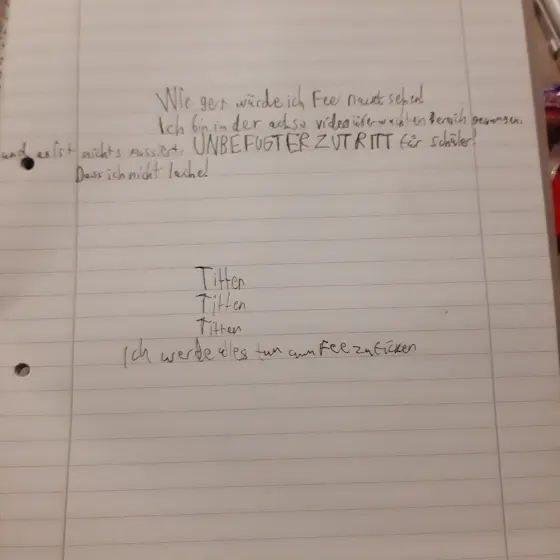 Wie gern würde ich Fee nackt sehen!
Ich bin in der achso videoüberwachten Bereich gegangen.
und es ist nichts passiert. UNBEFUGTER ZUTRITT für Schüler!
Dass ich nicht lache!
Titten
Titten
Titten
Ich werde alles tun um Fee zu ficken